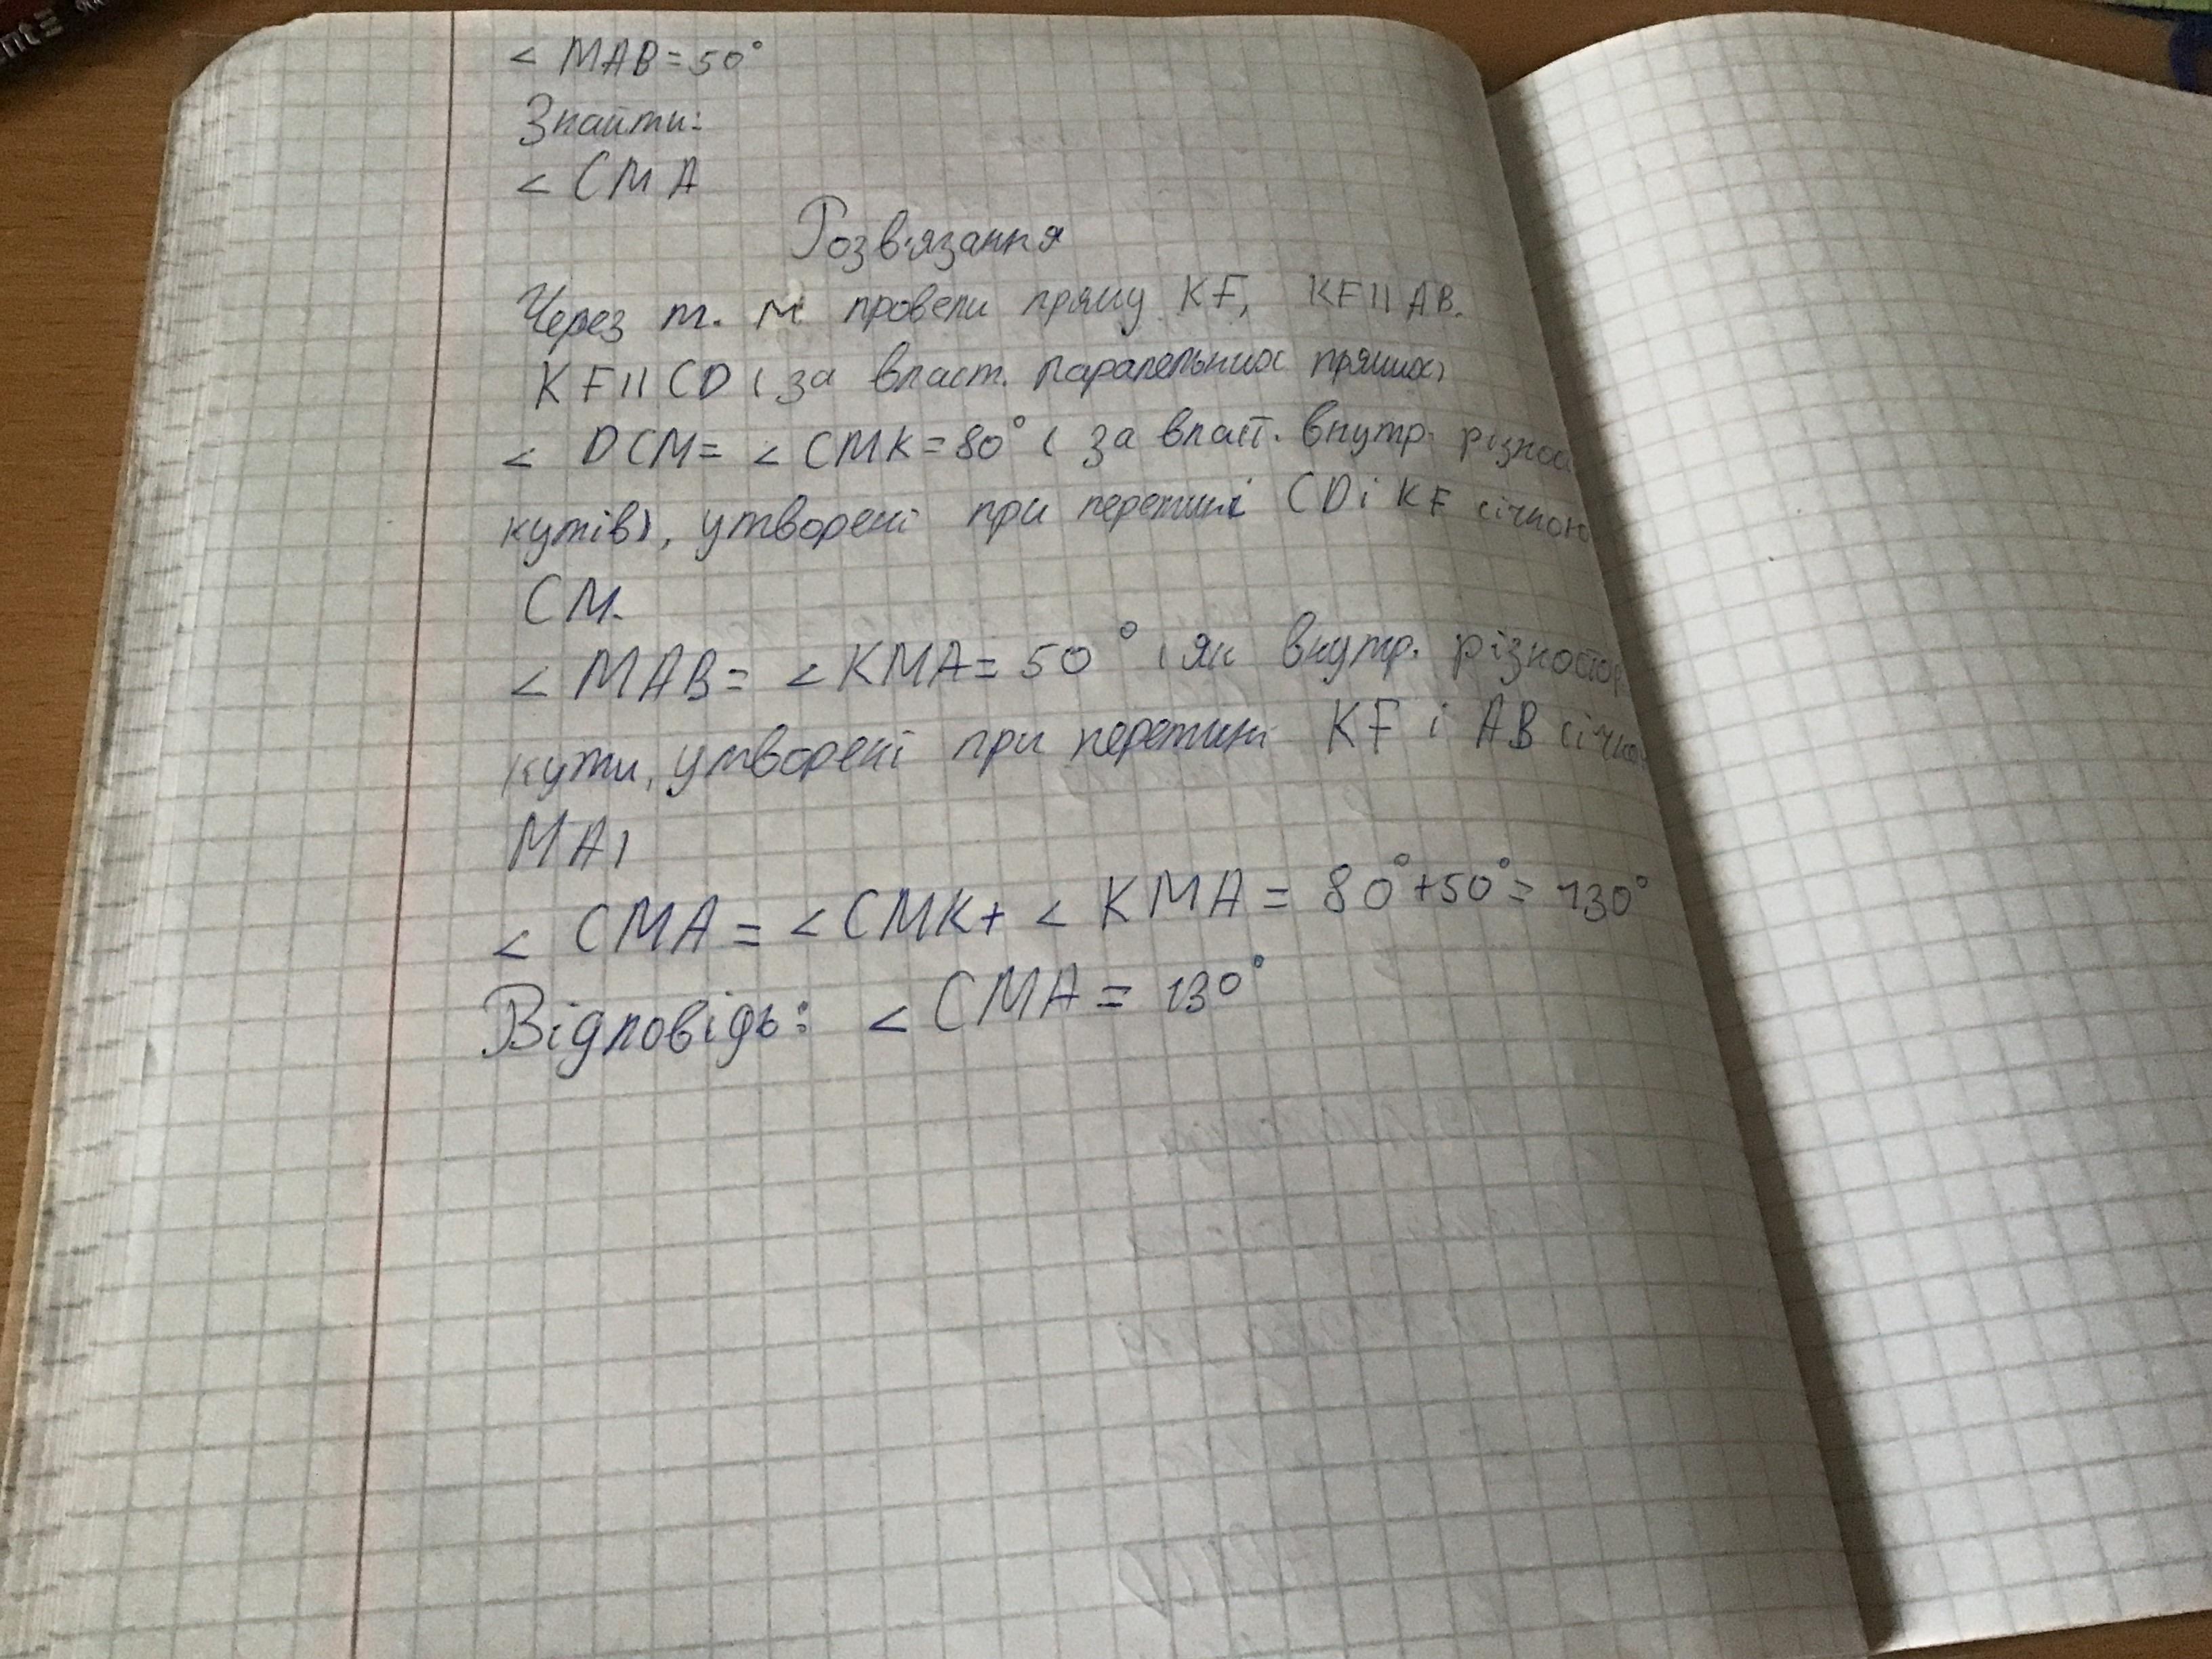 < MAB = 50°
Знайти:
< CMA
Розв'язання
Через т. M провели пряму KF, KF || AB.
KF || CD ( за власт. паралельних прямих)
< DCM = < CMK = 80° ( за власт. внутр. різнос
кутів), утворені при перетині CD і KF січною
CM.
< MAB = < KMA = 50° ( як внутр. різностор
кути, утворені при перетині KF і AB січно
MA)
< CMA = < CMK + < KMA = 80° + 50° = 130°
Відповідь: < CMA = 130°